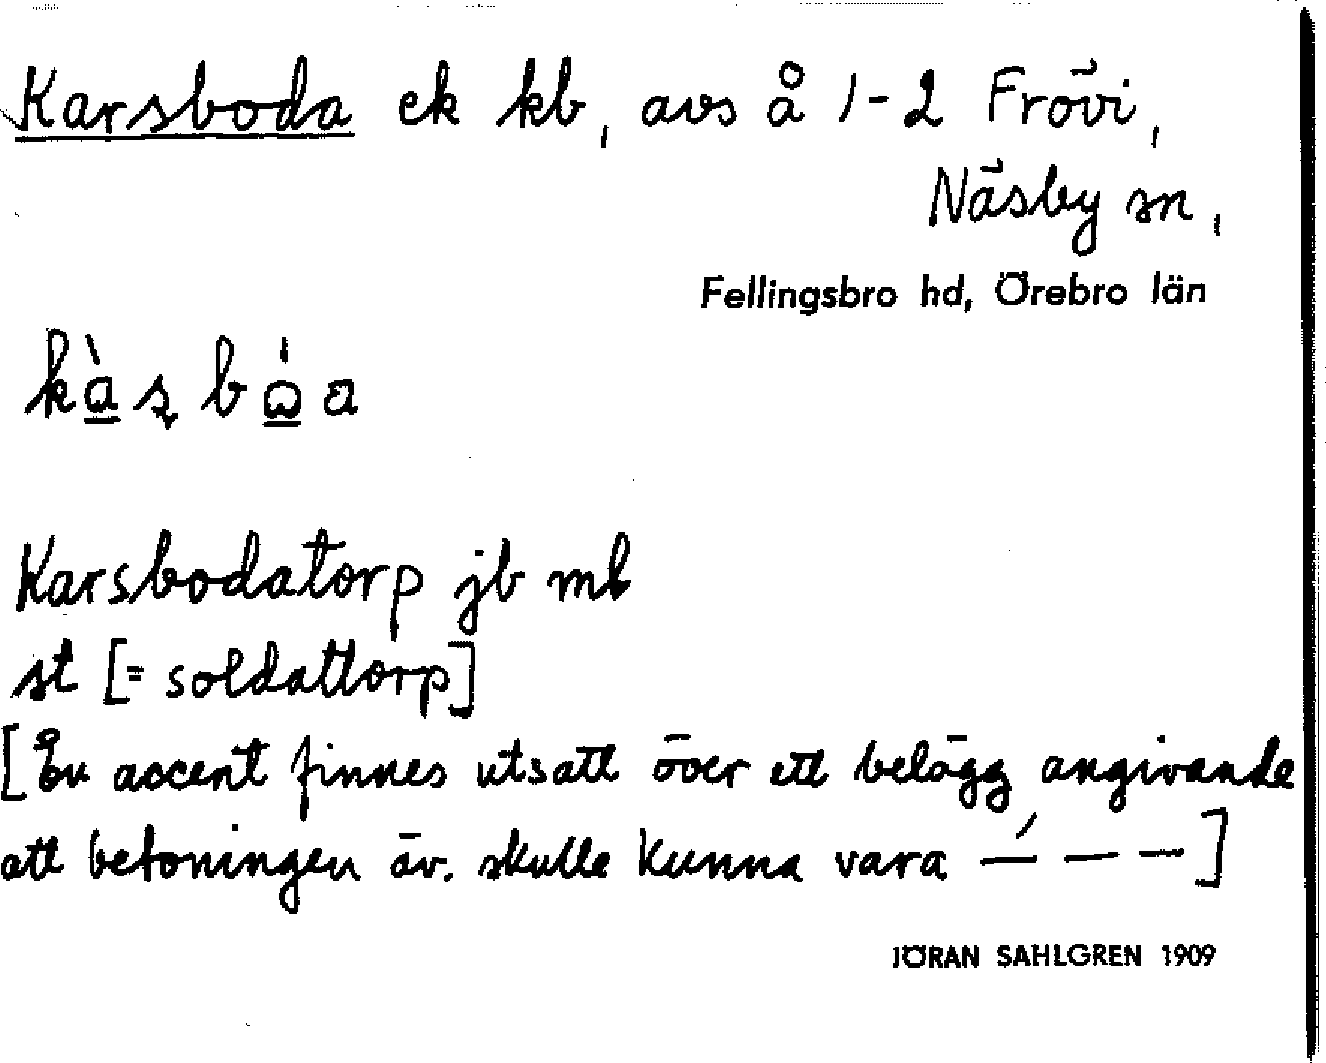 Karsboda ek kb, avs å 1-2 Frövi,
Näsby sn,
Fellingsbro hd, Örebro län
kàʂbω̍a
Karsbodatorp jb ml
st [= soldattorp]
[En accent finnes utsatt över ett belägg angivande
att betoningen äv. skulle kunna vara –́ – –]
JÖRAN SAHLGREN 1909